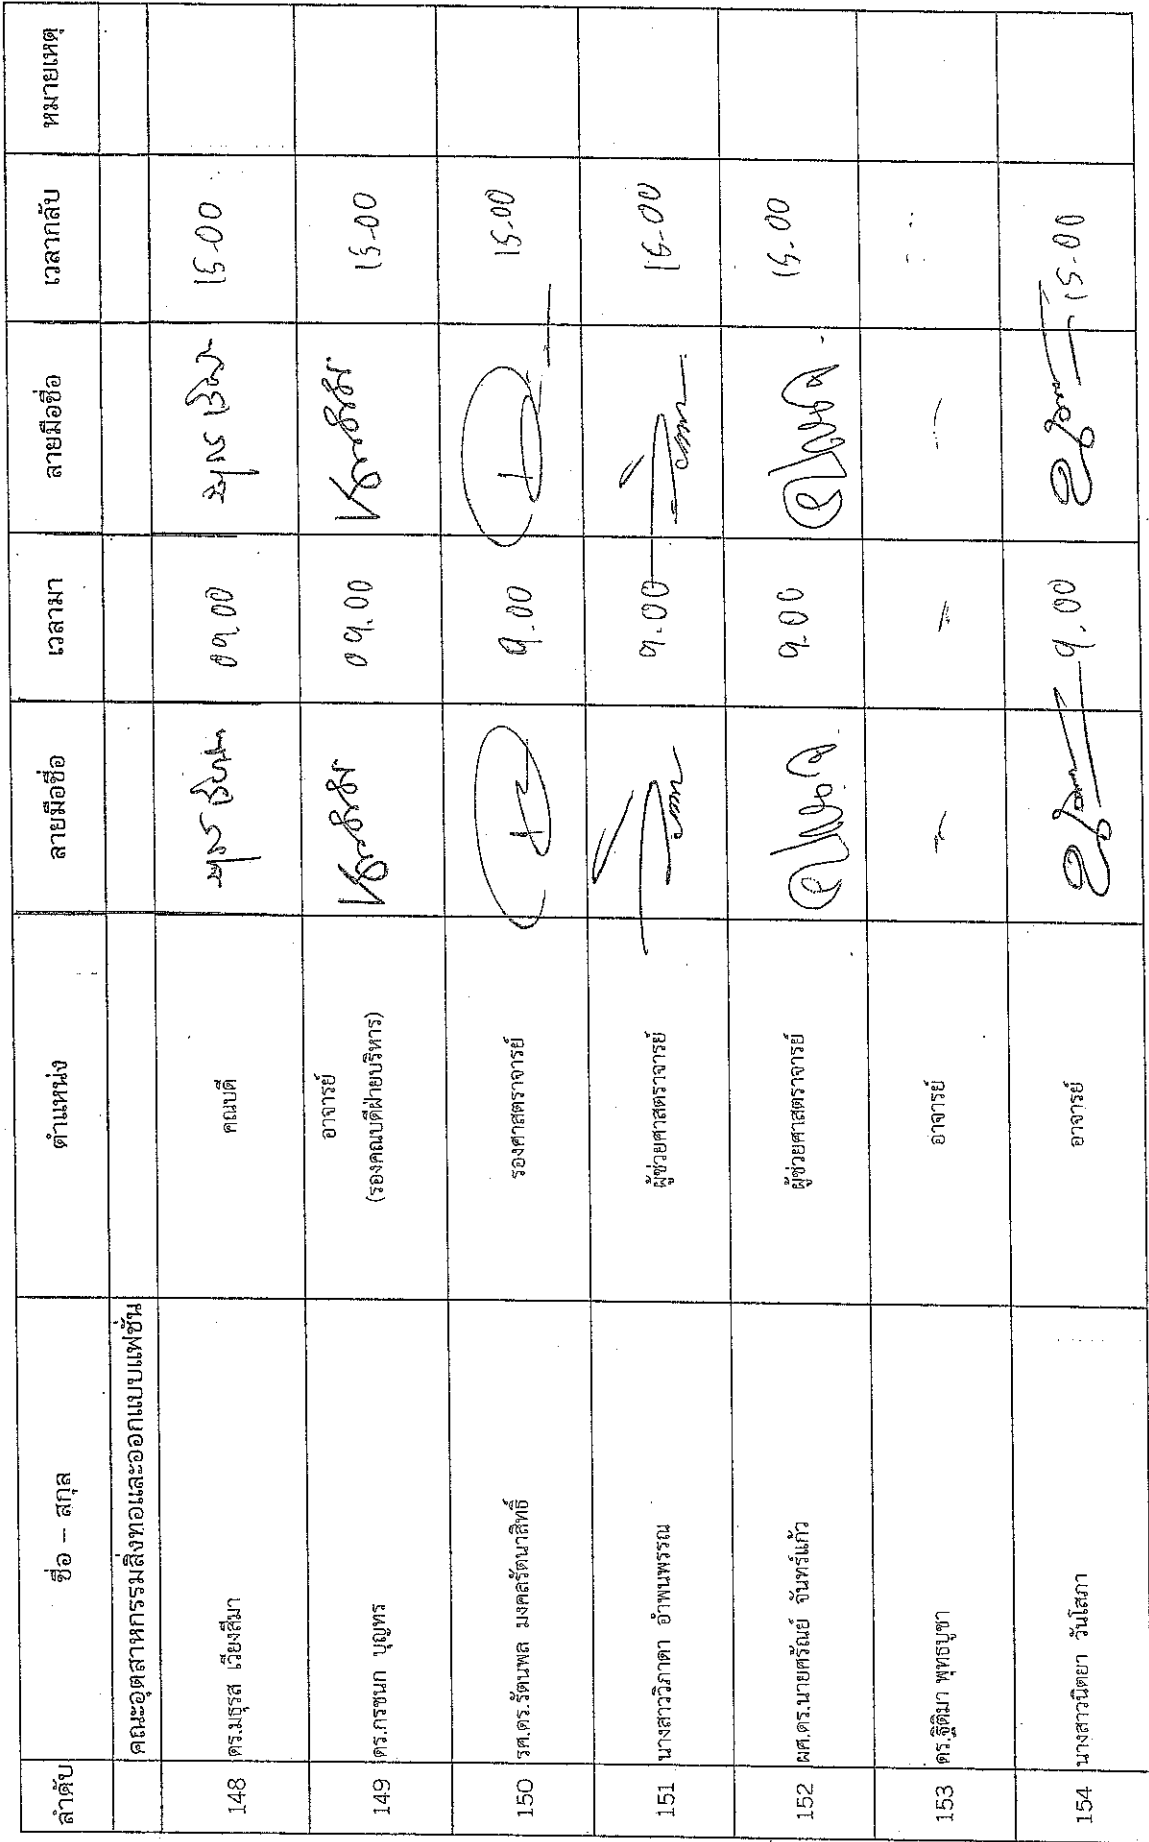 ลำดับ ชื่อ – สกุล ตำแหน่ง ลายมือชื่อ เวลามา ลายมือชื่อ เวลากลับ หมายเหตุ
คณะอุตสาหกรรมสิ่งทอและออกแบบแฟชั่น
148 ดร.มธุรส เวียงสีมา คณบดี 09.00 15-00
149 ดร.กรชนก บุญทร อาจารย์ 09.00 15-00
(รองคณบดีฝ่ายบริหาร)
150 รศ.ดร.รัตนพล มงคลรัตนาสิทธิ์ รองศาสตราจารย์ 9.00 15.00
151 นางสาววิภาดา อำพนพรรณ ผู้ช่วยศาสตราจารย์ 9.00 15-00
152 ผศ.ดร.นายศรัณย์ จันทร์แก้ว ผู้ช่วยศาสตราจารย์ 9.00 15.00
153 ดร.ฐิติมา พุทธบูชา อาจารย์ - - -
154 นางสาวนิตยา วันโสภา อาจารย์ 9.00 15.00